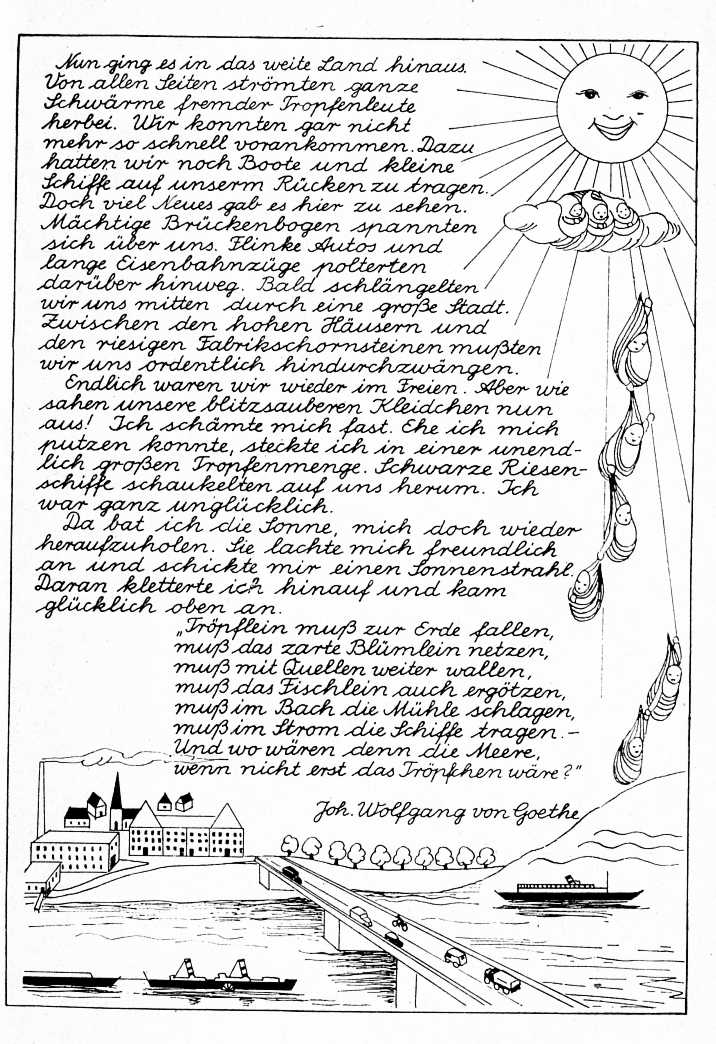 Nun ging es in das weite Land hinaus.
Von allen Seiten strömten ganze
Schwärme fremder Tropfenleute
herbei. Wir konnten gar nicht
mehr so schnell vorankommen. Dazu
hatten wir noch Boote und kleine
Schiffe auf unserm Rücken zu tragen.
Doch viel Neues gab es hier zu sehen.
Mächtige Brückenbogen spannten
sich über uns. Flinke Autos und
lange Eisenbahnzüge polterten
darüber hinweg. Bald schlängelten
wir uns mitten durch eine große Stadt.
Zwischen den hohen Häusern und
den riesigen Fabrikschornsteinen mußten
wir uns ordentlich hindurchzwängen.
Endlich waren wir wieder im Freien. Aber wie
sahen unsere blitzsauberen Kleidchen nun
aus! Ich schämte mich fast. Ehe ich mich
putzen konnte, steckte ich in einer unend-
lich großen Tropfenmenge. Schwarze Riesen-
schiffe schaukelten auf uns herum. Ich
war ganz unglücklich.
Da bat ich die Sonne, mich doch wieder
heraufzuholen. Sie lachte mich freundlich
an und schickte mir einen Sonnenstrahl.
Daran kletterte ich hinauf und kam
glücklich oben an.
„Tröpflein muß zur Erde fallen,
muß das zarte Blümlein netzen,
muß mit Quellen weiter wallen,
muß das Fischlein auch ergötzen,
muß im Bach die Mühle schlagen,
muß im Strom die Schiffe tragen. –
Und wo wären denn die Meere,
wenn nicht erst das Tröpfchen wäre?"
Joh. Wolfgang von Goethe